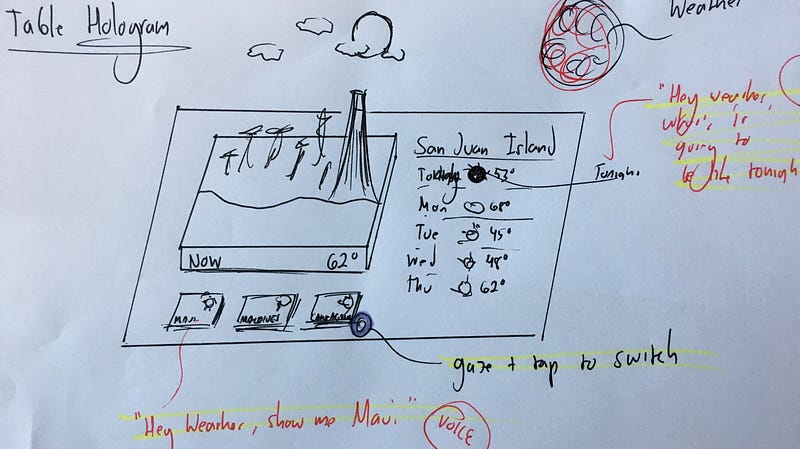 Table Hologram
Weather
"Hey weather,
what's is
going to
be like tonigh
San Juan Island
Today 53°
Tonigh.
Mon 68°
Tue 45°
Wed 48°
Thu 62°
Now 62°
MAUI
MALDIVES
gaze + tap to switch
"Hey Weather, show me Maui"
VOICE